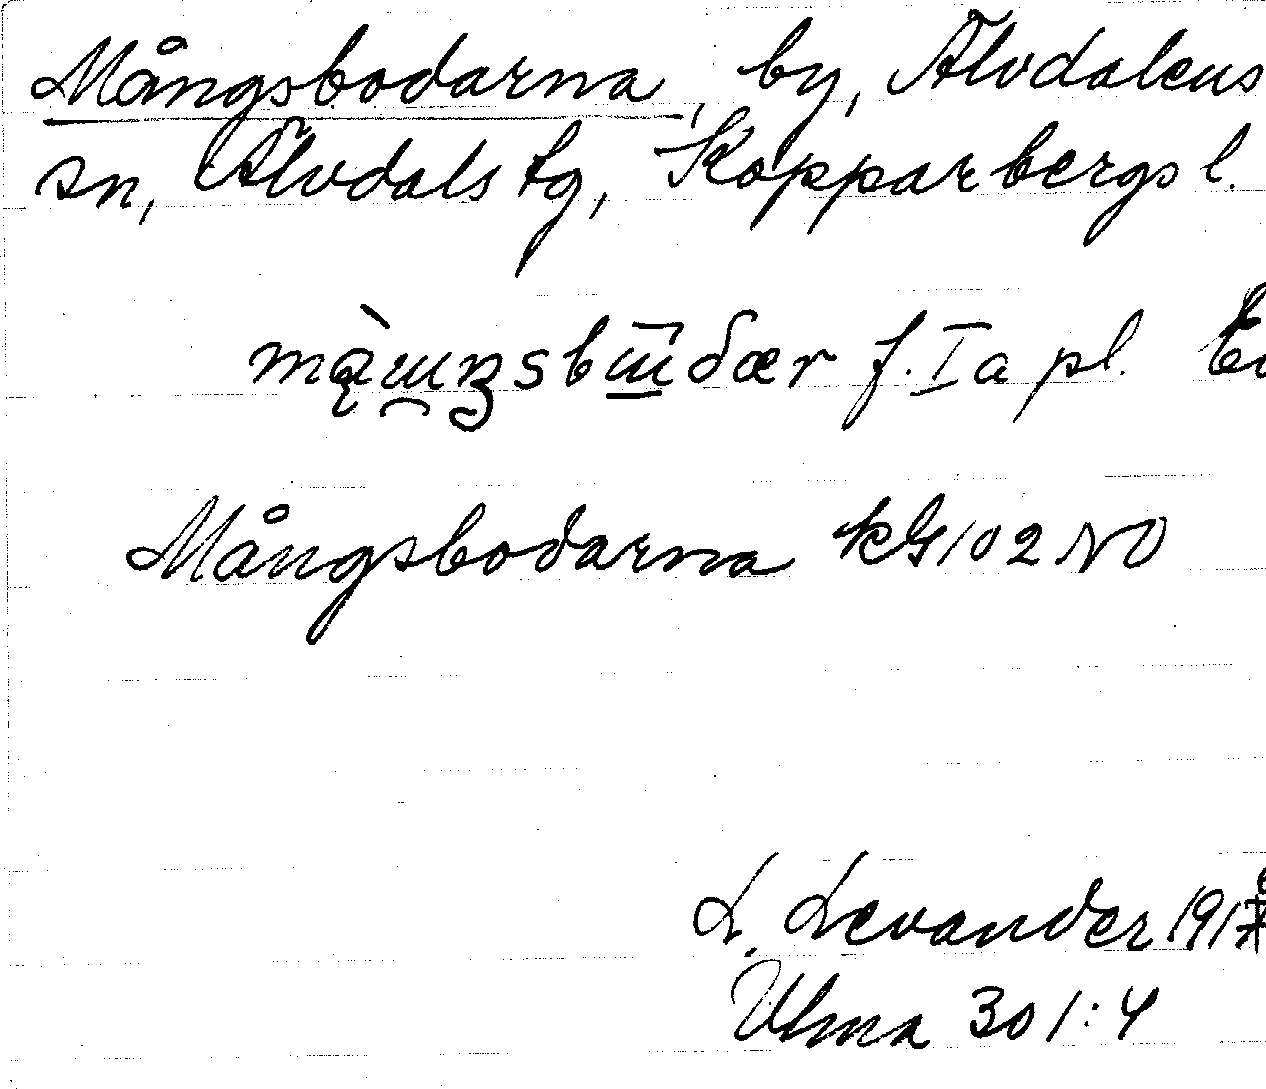 Mångsbodarna, by, Älvdalens
sn, Älvdals tg, Kopparbergs l.
f. I a pl.
Mångsbodarna KG 102 NO
L. Levander
Ulma 301:4